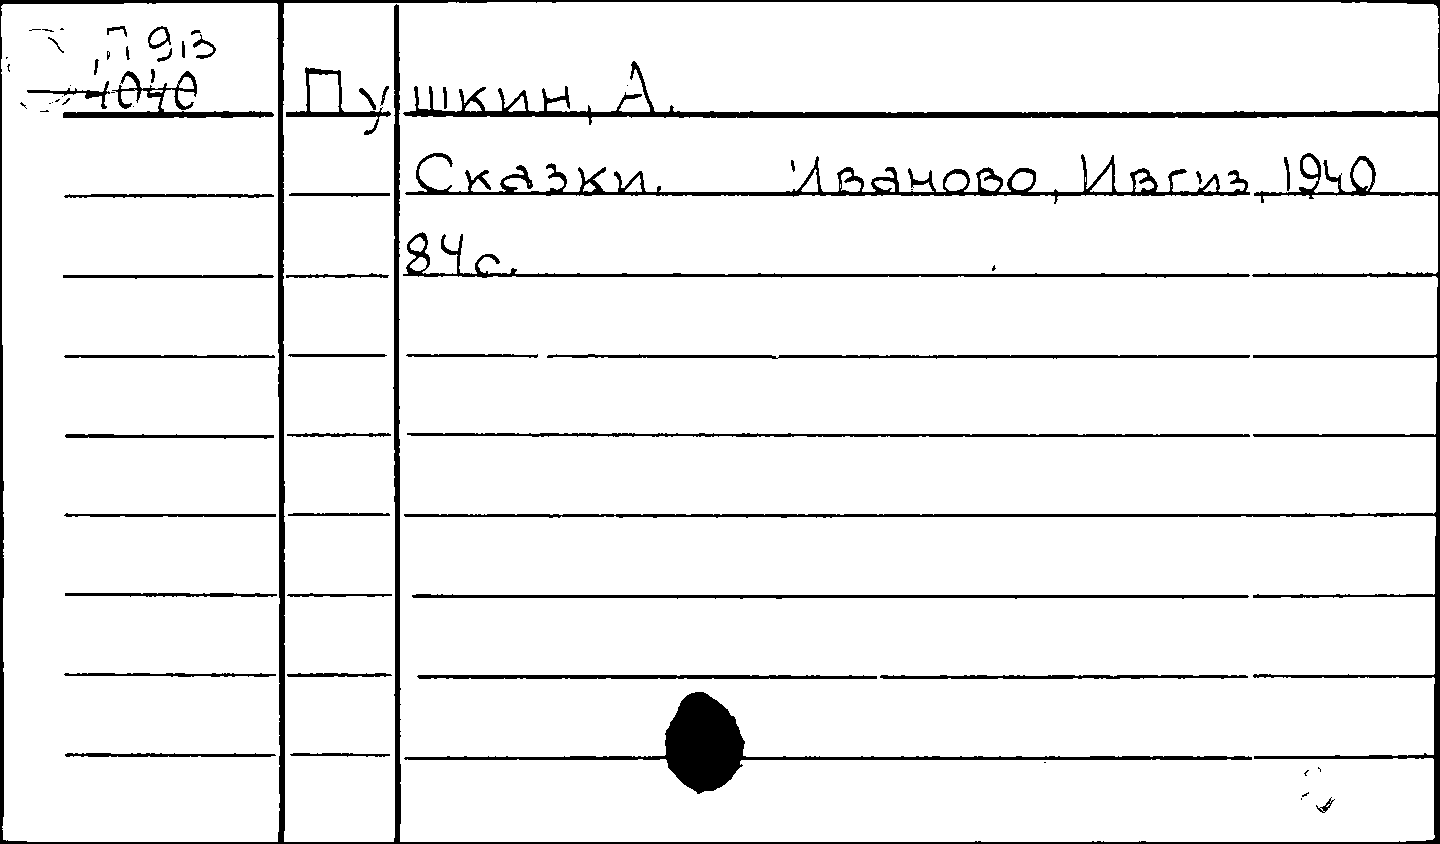 П 913
4040
Пушкин, А.
Сказки. Иваново, Ивгиз, 1940
84 с.